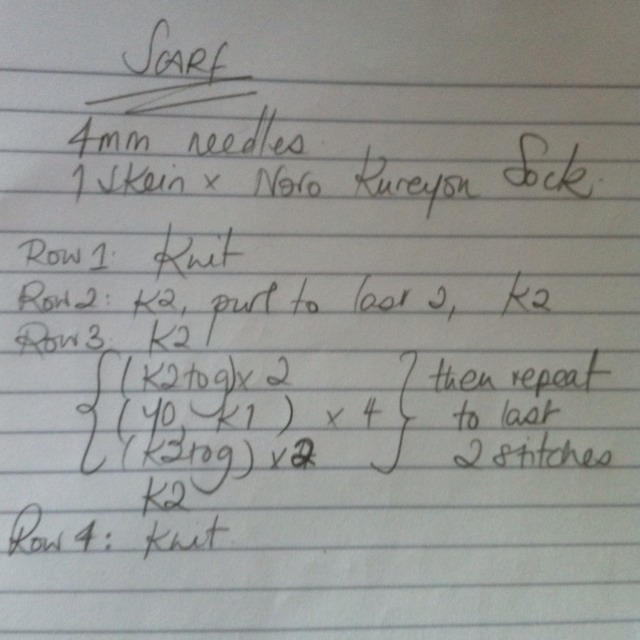 SCARF
4mm needles.
1 skein x Noro Kureyon Sock.
Row 1: Knit
Row 2: K2, purl to last 2, K2
Row 3: K2
{ (K2tog) x 2 } then repeat
{ (yo K1) x 4 } to last
{ (K2tog) x 2 } 2 stitches
K2
Row 4: Knit.